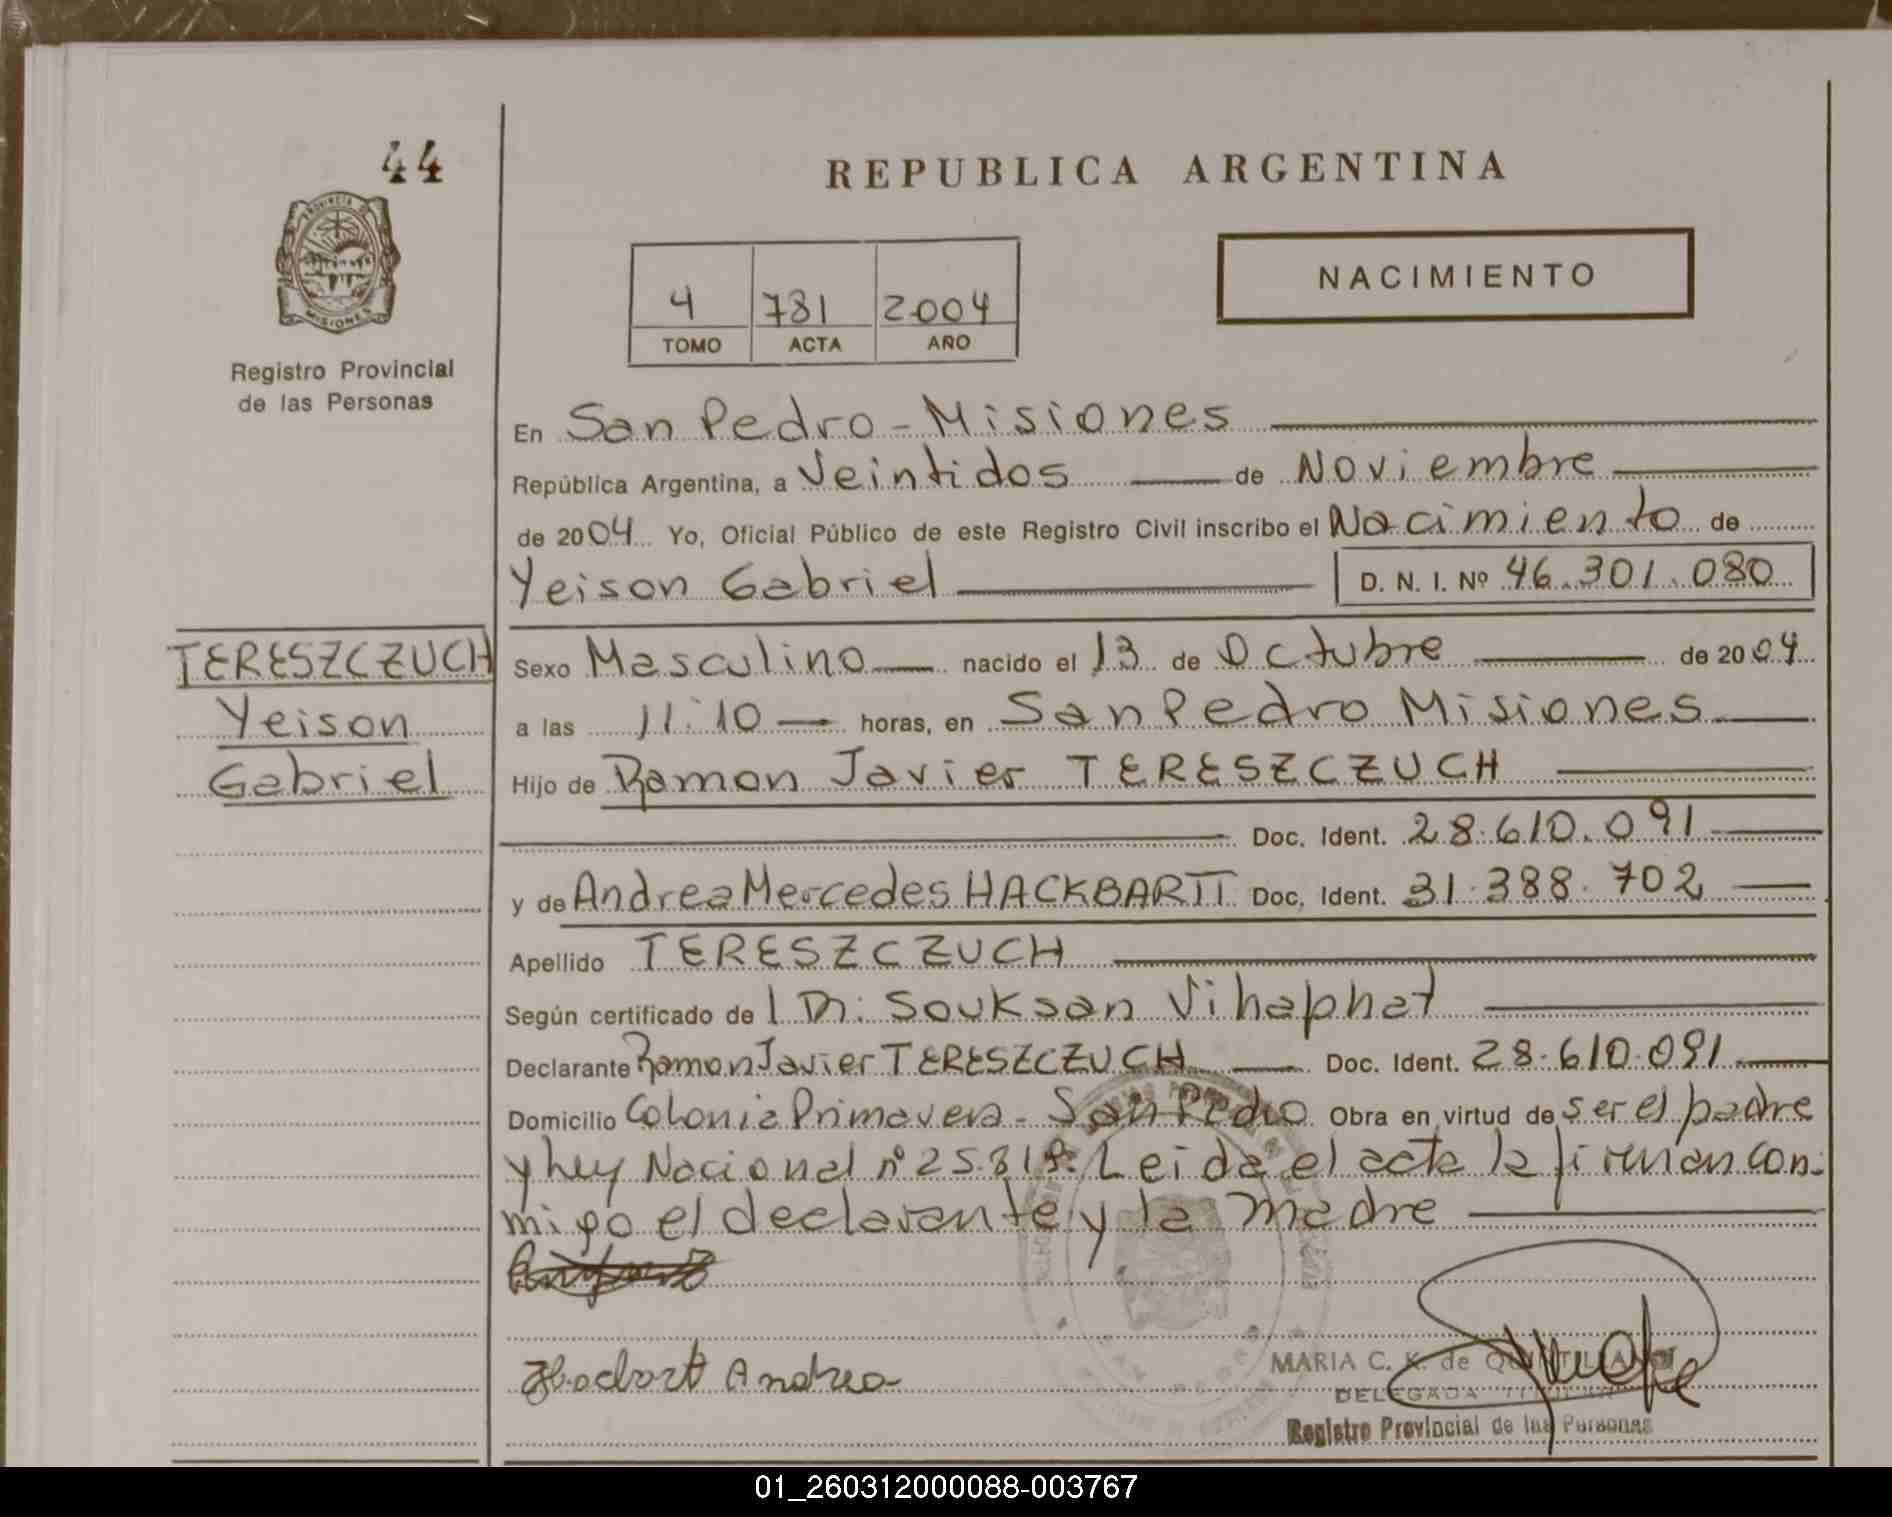 44
PROVINCIA DE
MISIONES
Registro Provincial
de las Personas
REPUBLICA ARGENTINA
4 781 2004
TOMO ACTA AÑO
NACIMIENTO
En San Pedro - Misiones
República Argentina, a Veintidos de Noviembre
de 2004 Yo, Oficial Público de este Registro Civil inscribo el Nacimiento de
Yeison Gabriel D. N. I. Nº 46.301.080
TERESZCZUCH
Yeison
Gabriel
Sexo Masculino nacido el 13 de Octubre de 2004
a las 11:10 horas, en San Pedro Misiones
Hijo de Ramon Javier TERESZCZUCH
Doc. Ident. 28.610.091
y de Andrea Mercedes HACKBARTT Doc. Ident. 31.388.702
Apellido TERESZCZUCH
Según certificado de Dr: Souksan Vihaphat
Declarante Ramon Javier TERESZCZUCH Doc. Ident. 28.610.091
Domicilio Colonia Primavera - San Pedro Obra en virtud de ser el padre
y Ley Nacional nº 25.819. Leida el acta la firman con-
migo el declarante y la madre
Andrea
MARIA C. K. de
DELEGADA TITULAR
Registro Provincial de las Personas
01_260312000088-003767